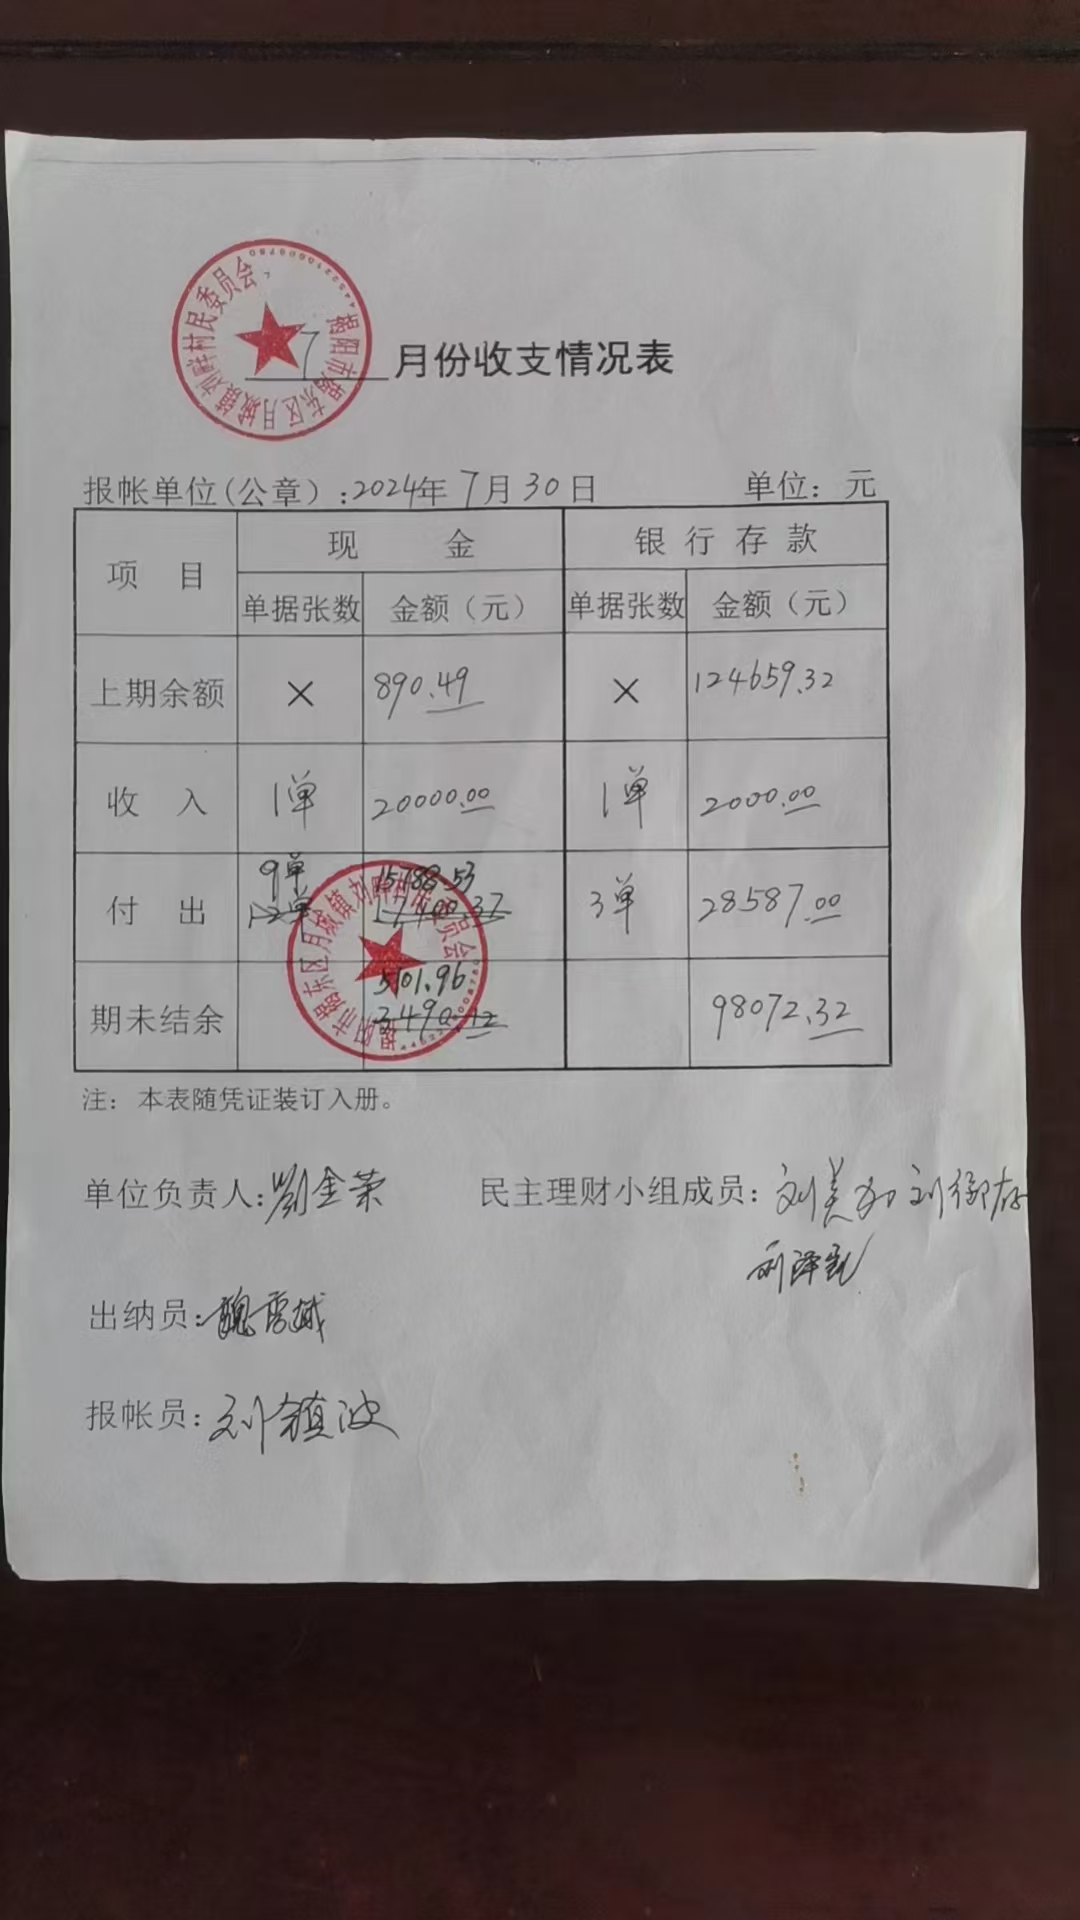 揭阳市揭东区月城镇刘畔村民委员会
7 月份收支情况表
报帐单位(公章）:2024年 7月30日 单位：元
项 目 现 金 银 行 存 款
单据张数 金额（元） 单据张数 金额（元）
上期余额 × 890.49 × 124659.32
收 入 1单 20000.00 1单 2000.00
9单 15788.53
付 出 12单 17400.37 3单 28587.00
5101.96
期未结余 3490.12 98072.32
注：本表随凭证装订入册。
单位负责人:刘金荣 民主理财小组成员：刘美 刘
刘泽
出纳员:魏
报帐员:刘镇波